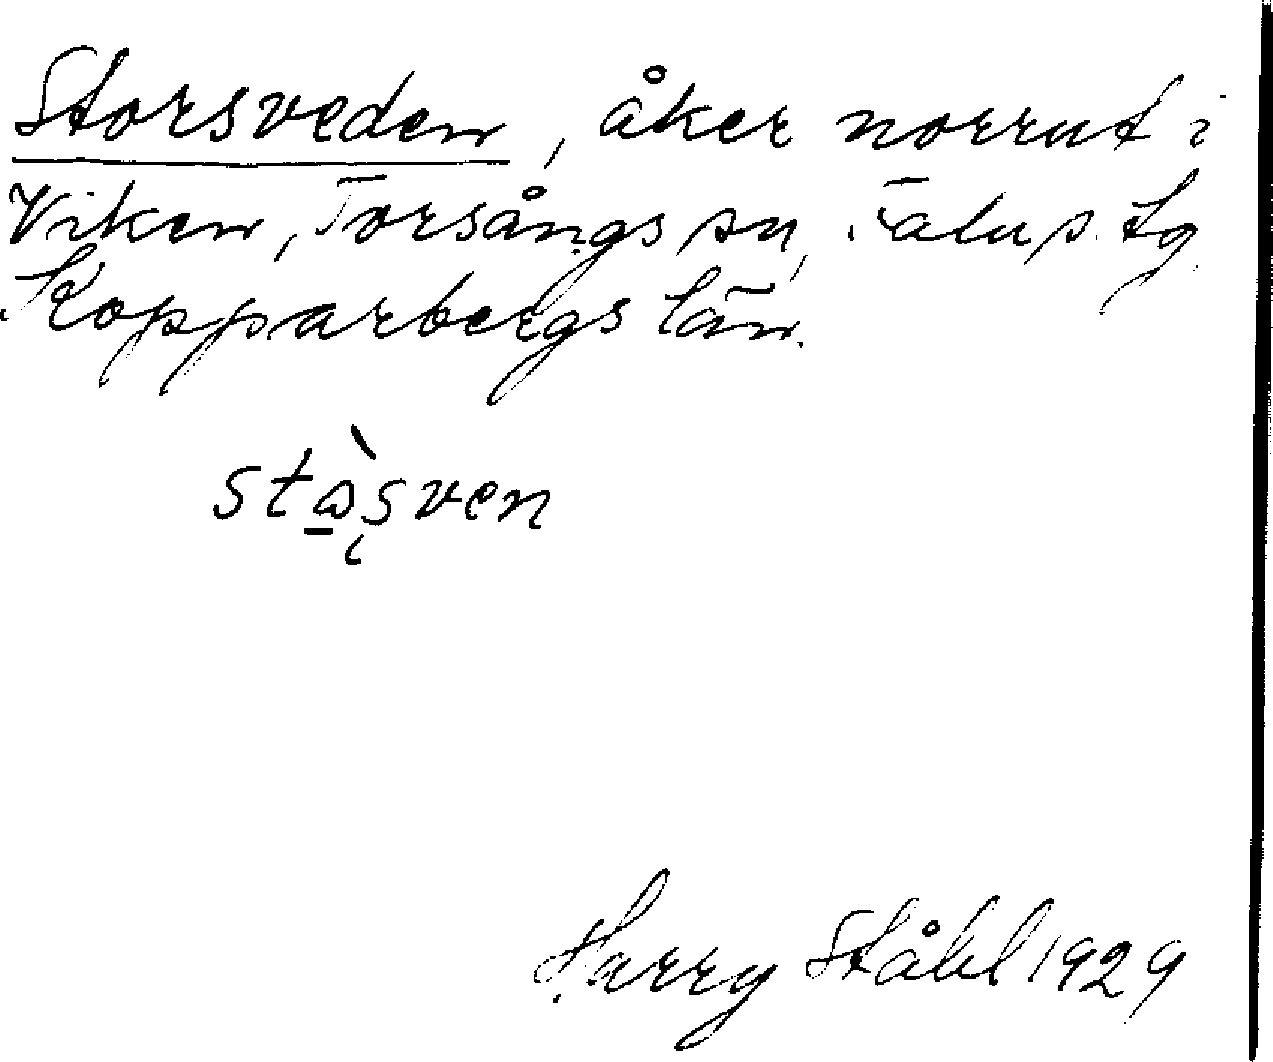 Storsveden, åker norrut i
Viken, Torsångs sn, Falu s. tg
Kopparbergs län.
Harry Ståhl 1929